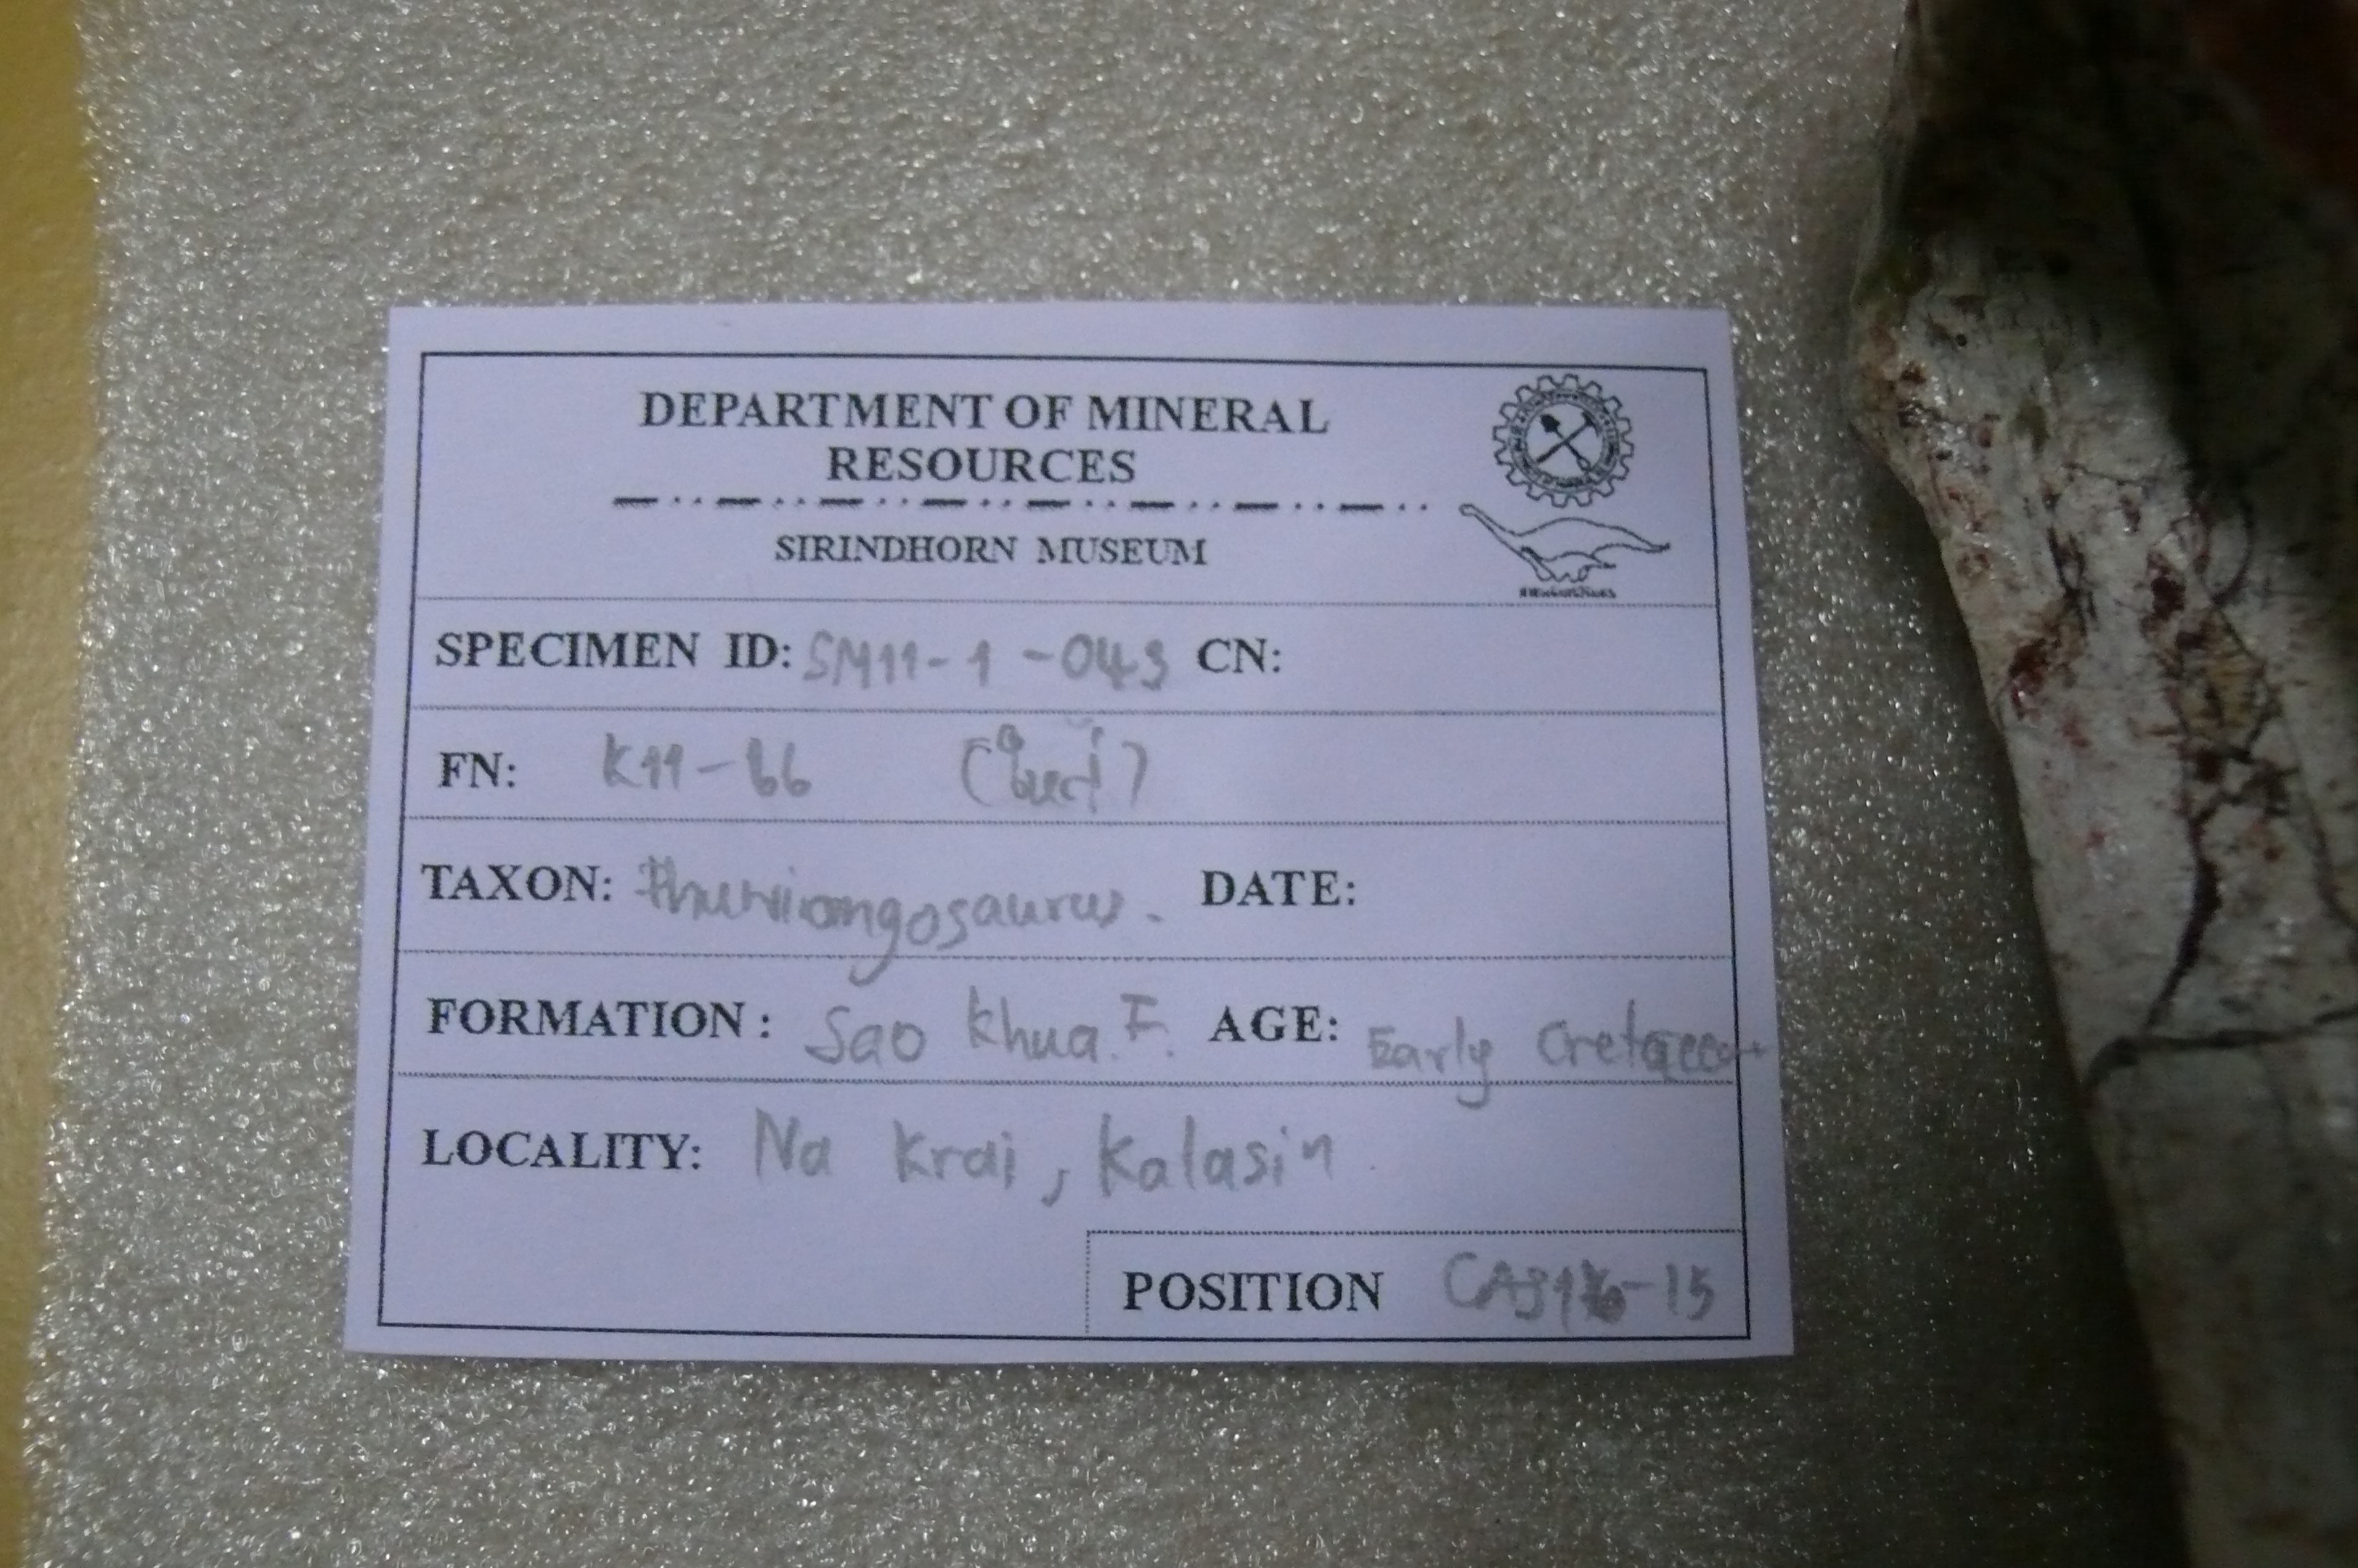 DEPARTMENT OF MINERAL
RESOURCES
SIRINDHORN MUSEUM
SPECIMEN ID: SM11-1-043 CN:
FN: K11-66
TAXON: Phuwiangosaurus. DATE:
FORMATION: Sao Khua. F. AGE: Early Cretaceou
LOCALITY: Na Krai, Kalasin.
POSITION